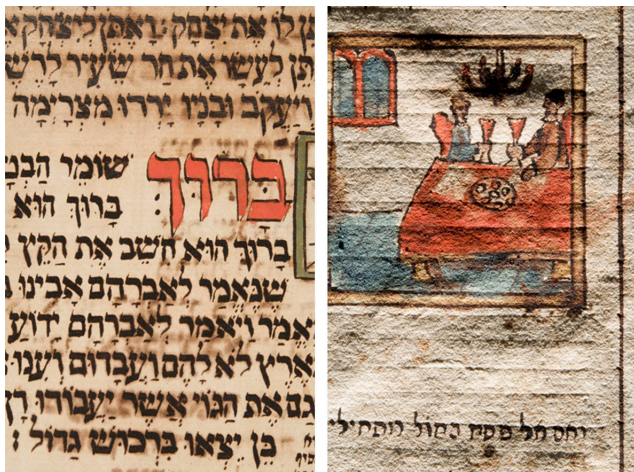 ן לו את יצחק ואתן ליצחק
תן לעשו את הר שעיר לרש
ויעקב ובניו ירדו מצרימה
ברוך שומר
ברוך הוא
ברוך הוא חשב את הקץ
שנאמר לאברהם אבינו
אמר ויאמר לאברהם ידוע
ארץ לא להם ועבדום וענו
גם את הגוי אשר יעבודו דן
כן יצאו ברכוש גדול :
ואם חל פסח בחול מתחילי